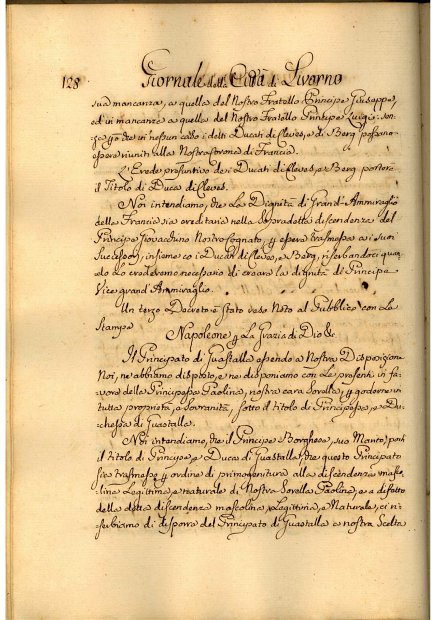 128 Giornale della Città di Livorno
sua mancanza, a quella del Nostro Fratello Principe Giuseppe,
ed in mancanza a quella del Nostro Fratello Principe Luigi, sen-
za che in nessun caso i detti Ducati di Cleves, e di Berg possano
essere riuniti alla Nostra Corona di Francia.
L'Erede presuntivo dei Ducati di Cleves, e Berg porterà
il Titolo di Duca di Cleves.
Noi intendiamo, che La Dignità di Grand-Ammiraglio
della Francia sia ereditaria nella sopradetta discendenza del
Principe Giovacchino Nostro Cognato, p essere trasmessa ai suoi
Successori, insieme co i Ducati di Cleves, e Berg, riserbandoci quan-
do Lo crederemo necessario di creare la dignità di Principe
Vice grand'Ammiraglio.
Un terzo Decreto è stato reso Noto al Pubblico con Le
Stampe
Napoleone p La Grazia di Dio &c.
Il Principato di Guastalla essendo a Nostra Disposizione
Noi, ne abbiamo disposto, e ne disponiamo con Le presenti in fa-
vore della Principessa Paolina, nostra cara Sorella, p goderne in
tutta proprietà, e sovranità, sotto il titolo di Principessa, e Du-
chessa di Guastalla.
Noi intendiamo, che il Principe Borghese, suo Marito, porti
il titolo di Principe, e Duca di Guastalla, che questo Principato
sia trasmesso p ordine di primogenitura alla discendenza masco-
lina Legittima, e naturale di Nostra Sorella Paolina, e a difetto
della detta discendenza mascolina, Legittima, e Naturale, ci ri-
serbiamo di disporre del Principato di Guastalla a nostra Scelta